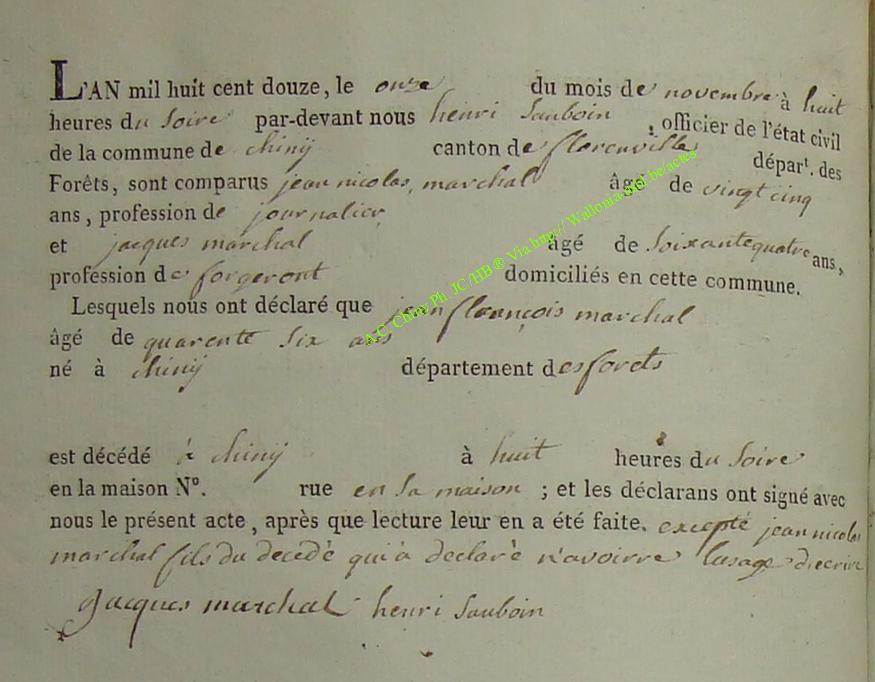 L'AN mil huit cent douze, le onze du mois de novembre à huit
heures du Soire par-devant nous henri Sauboin, officier de l'état civil
de la commune de chinÿ canton de florenville départ. des
Forêts, sont comparus jean nicolas marchal âgé de vingt cinq
ans, profession de journalier
et jacques marchal âgé de Soixante quatre ans,
profession de forgeront domiciliés en cette commune.
Lesquels nous ont déclaré que jean francois marchal
âgé de quarente Six ans
né à chinÿ département des forets
est décédé à chinÿ à huit heures du Soire
en la maison N°. rue en Sa maison ; et les déclarans ont signé avec
nous le présent acte, après que lecture leur en a été faite. excepté jean nicolas
marchal fils du decédé qui à declaré n'avoirre lusage decrire
Jacques marchal henri Sauboin
A.C. Chiny Ph. JC /HB ® Via http:// Wallonia-Bel.be/actes